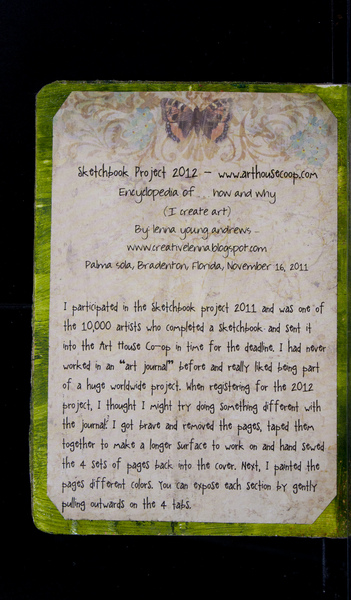 Sketchbook Project 2012 - www.arthousecoop.com
Encyclopedia of... how and why
(I create art)
By: lenna young andrews
www.creativelenna.blogspot.com
Palma Sola, Bradenton, Florida, November 16, 2011
I participated in the Sketchbook project 2011 and was one of
the 10,000 artists who completed a Sketchbook and sent it
into the Art House Co-op in time for the deadline. I had never
worked in an "art journal" before and really liked being part
of a huge worldwide project. When registering for the 2012
project, I thought I might try doing something different with
the journal. I got brave and removed the pages, taped them
together to make a longer surface to work on and hand sewed
the 4 sets of pages back into the cover. Next, I painted the
pages different colors. You can expose each section by gently
pulling outwards on the 4 tabs.